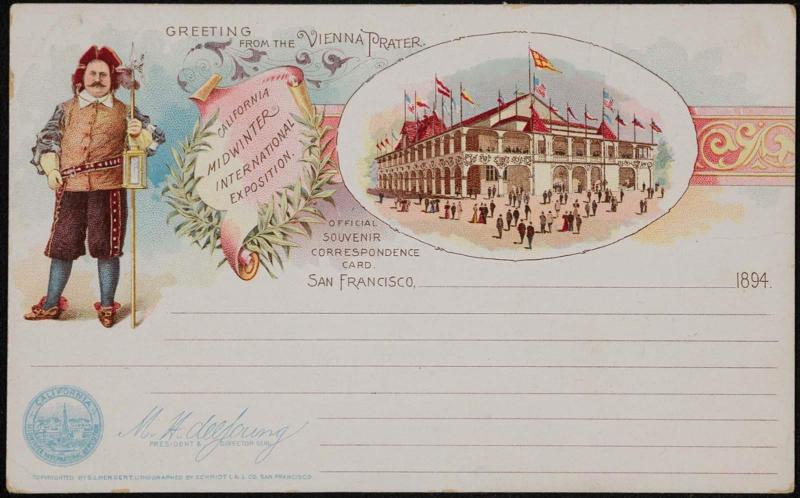 GREETING FROM THE VIENNA PRATER.
CALIFORNIA
MIDWINTER
INTERNATIONAL
EXPOSITION.
OFFICIAL
SOUVENIR
CORRESPONDENCE
CARD.
SAN FRANCISCO, 1894.
CALIFORNIA
MIDWINTER INTERNATIONAL EXPOSITION
M. H. de Young
PRESIDENT & DIRECTOR GEN.
COPYRIGHTED BY S.L. HERGERT, LITHOGRAPHED BY SCHMIDT L. & L. CO. SAN FRANCISCO